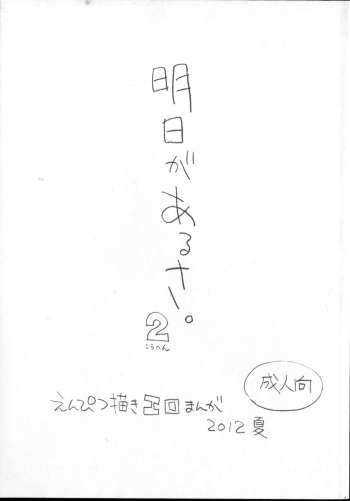 明日があるサー。
2
こうへん
成人向
えんぴつ描きエロまんが
2012 夏